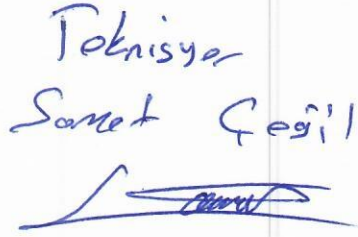 Teknisyen
Samet Çeğil